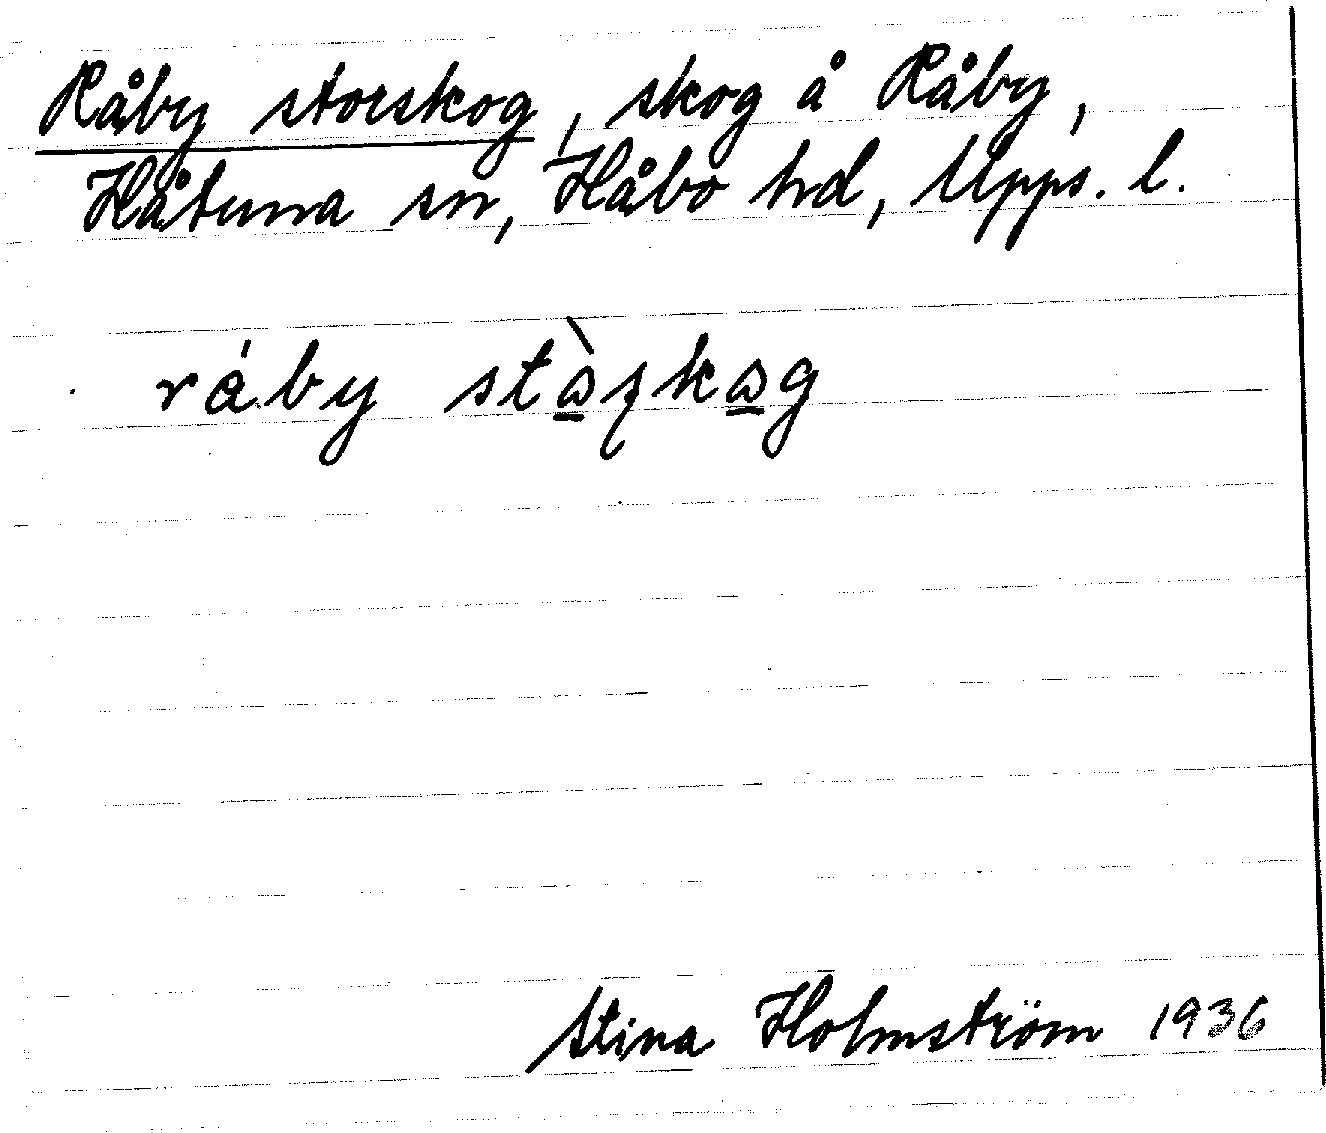 Råby storskog, skog å Råby,
Håtuna sn, Håbo hd, Upps. l.
ráby
Stina Holmström 1936